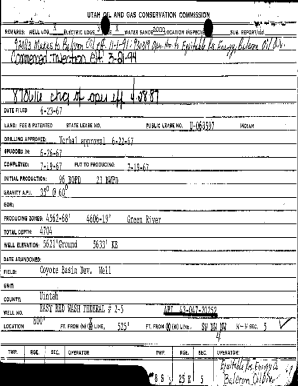 UTAH OIL AND GAS CONSERVATION COMMISSION
REMARKS: WELL LOG ELECTRIC LOGS X WATER SANDS LOCATION INSPECTED SUB. REPORT/abd.
Commenced Injection Eff 3-21-94
870616 chg of oper eff 4-2887
DATE FILED 6-23-67
LAND: FEE & PATENTED STATE LEASE NO. PUBLIC LEASE NO. U-063597 INDIAN
DRILLING APPROVED: Verbal approval 6-22-67
SPUDDED IN: 6-26-67
COMPLETED: 7-19-67 PUT TO PRODUCING: 7-15-67
INITIAL PRODUCTION: 96 BOPD 23 BWPD
GRAVITY A.P.I. @ 60°
GOR:
PRODUCING ZONES: 4562-68' 4606-13' Green River
TOTAL DEPTH: 4704
WELL ELEVATION: 5621' Ground 5633' KB
DATE ABANDONED:
FIELD: Coyote Basin Dev. Well
UNIT:
COUNTY: Uintah
WELL NO. EAST RED WASH FEDERAL # 2-5 API 43-047-20252
LOCATION FT. FROM (N) LINE, 525' FT. FROM (W) LINE. SW NW NW SEC. 5
TWP. RGE. SEC. OPERATOR TWP. RGE. SEC. OPERATOR
8 S 25 E 5 Equitable Res Energy Co